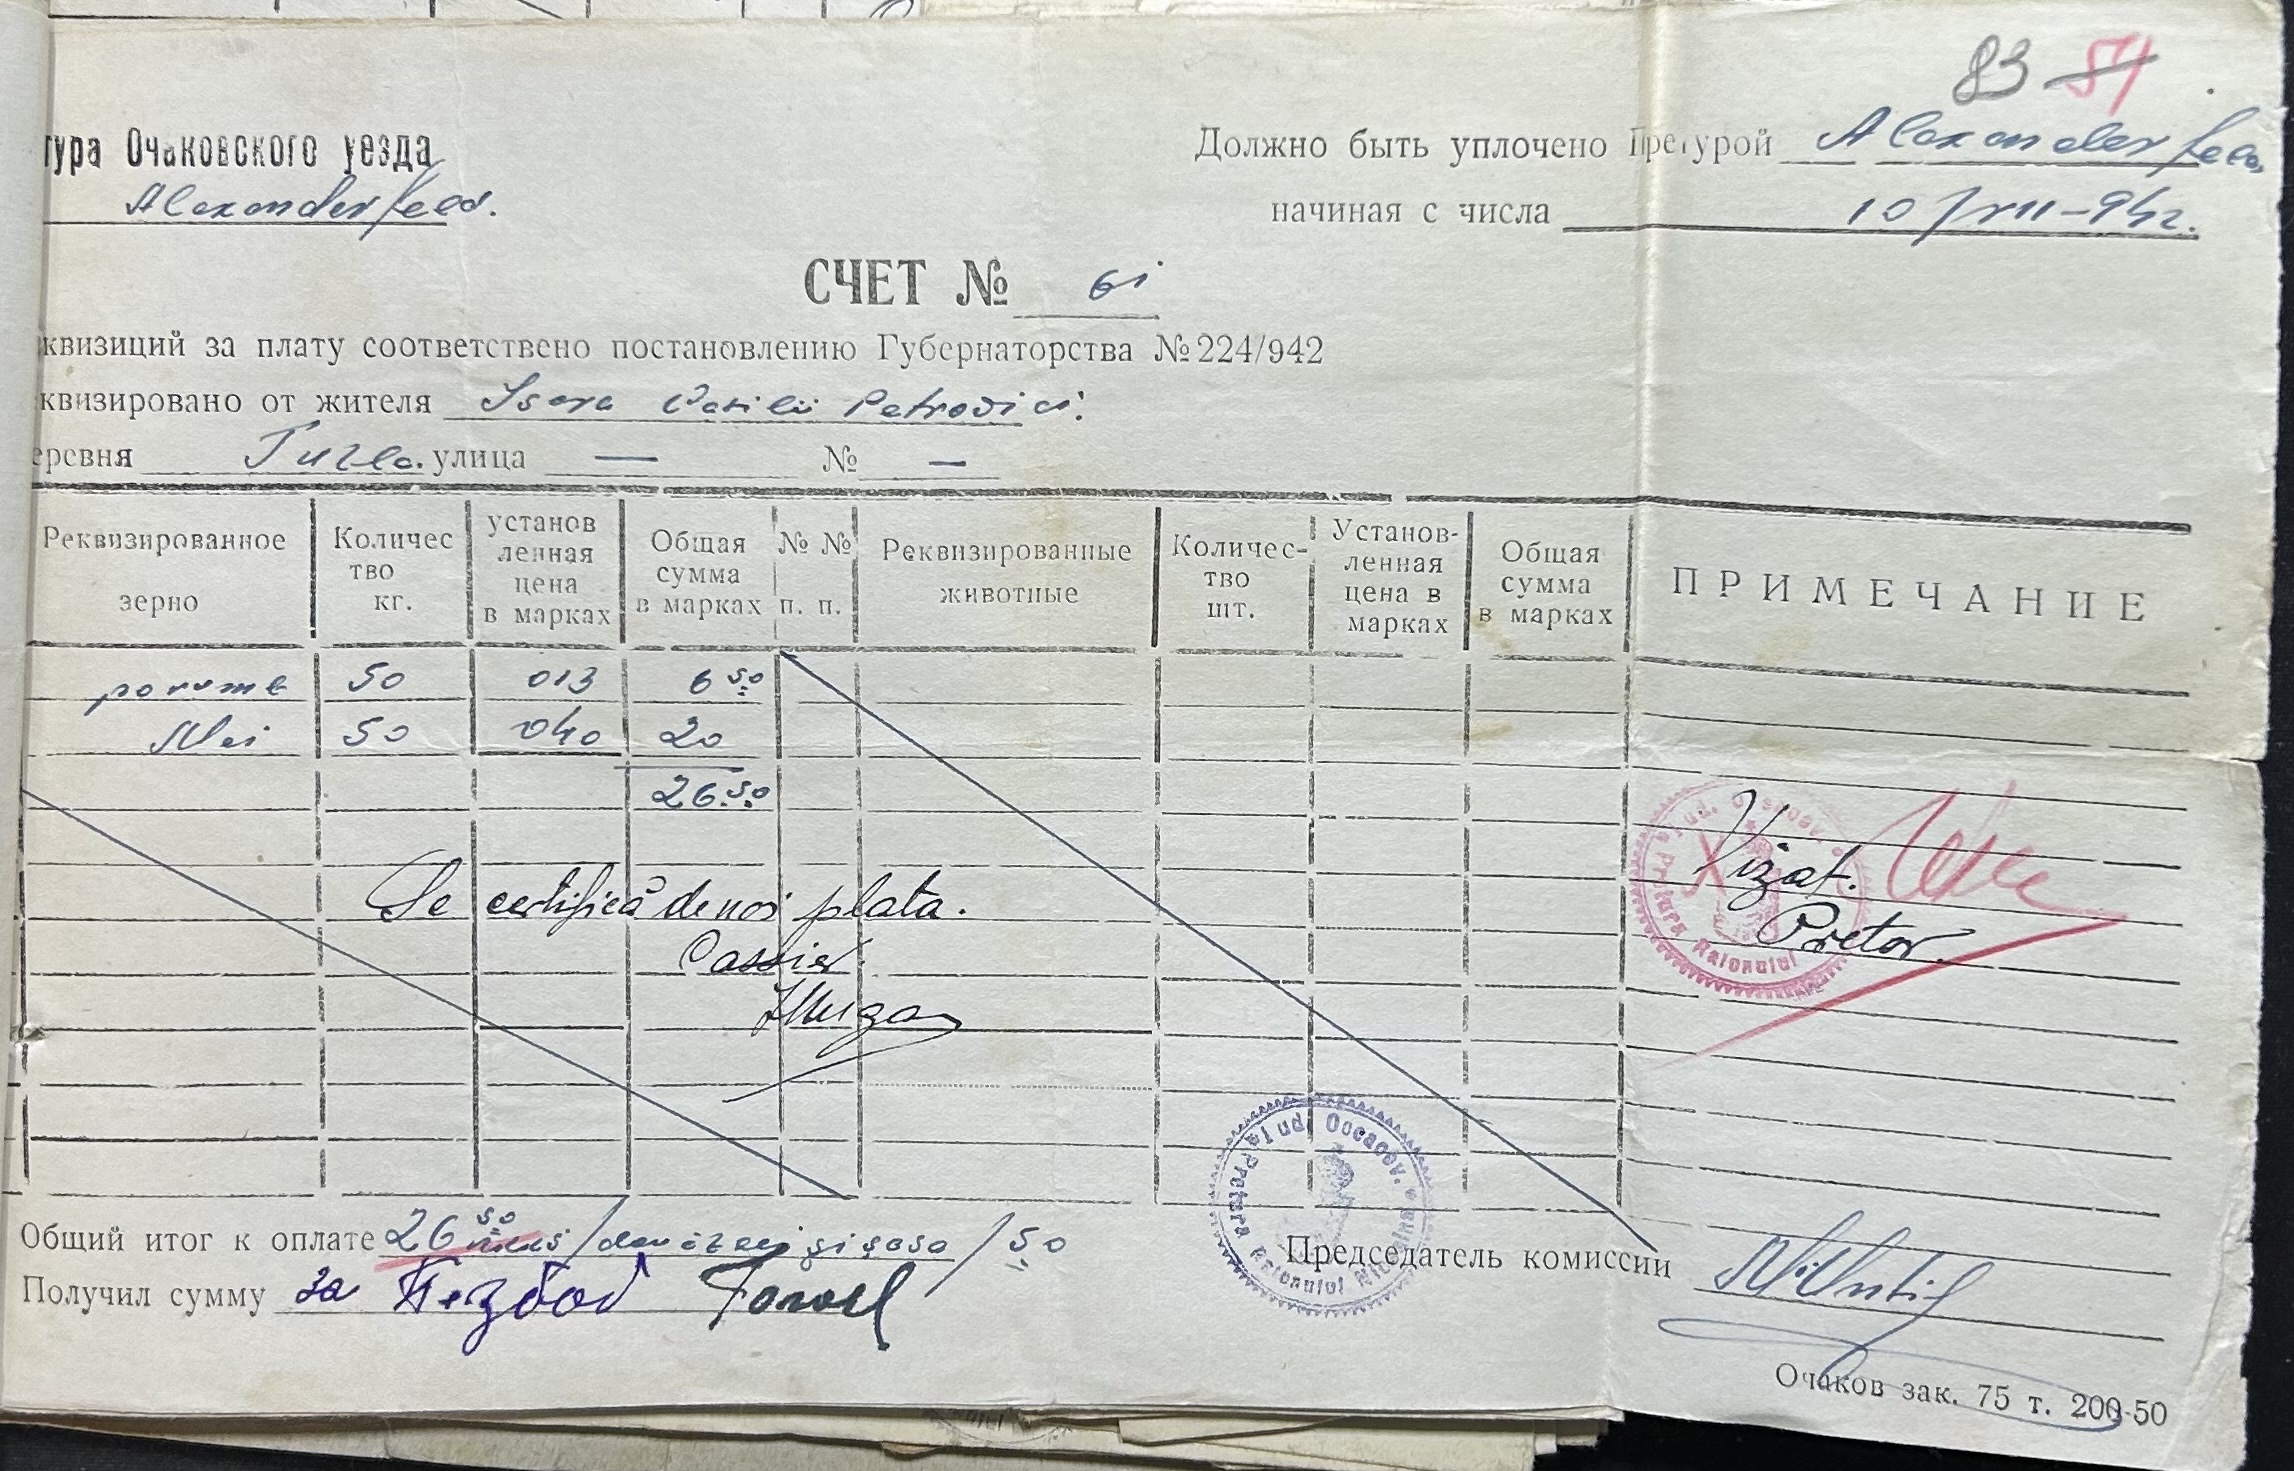 83 51
тура Очаковского уезда
Alexanderfeld.
Должно быть уплочено Претурой Alexanderfeld
начиная с числа 10/VII-942.
СЧЕТ № 61
квизиций за плату соответствено постановлению Губернаторства № 224/942
квизировано от жителя Vasilii Petrovici.
еревня улица — № —
Реквизированное зерно
Количес тво кг.
установ ленная цена в марках
Общая сумма в марках
№ № п. п.
Реквизированные животные
Количес- тво шт.
Установ- ленная цена в марках
Общая сумма в марках
ПРИМЕЧАНИЕ
porumb 50 013 6 50
50 040 20
26.50
Se certifică de noi plata.
Cassier
Vizat.
Pretor
Pretura Raionului
Jud. Oceacov.
Pretura Raionului
Общий итог к оплате 26 50 / douăzeci și șase / 50
Получил сумму за
Председатель комиссии
Очаков зак. 75 т. 200-50